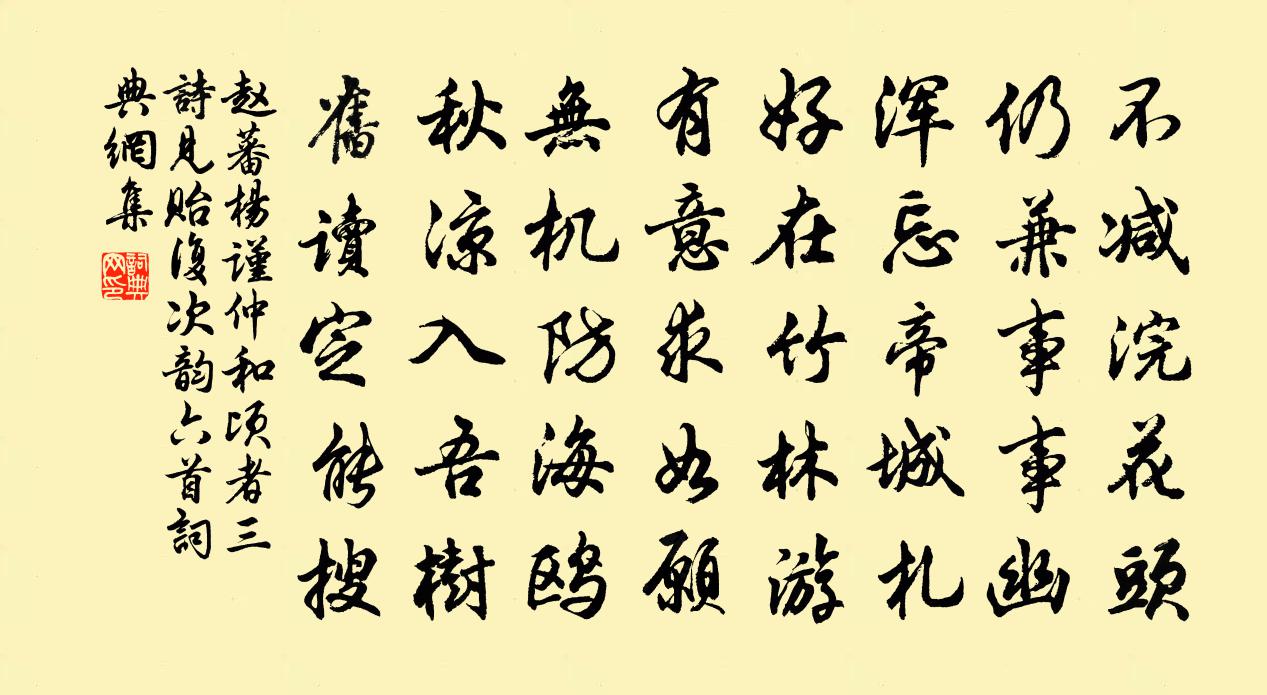 不减浣花頭
仍兼事事幽
浑忘帝城札
好在竹林游
有意求如願
無机防海鸥
秋凉入吾樹
舊讀定能搜
赵蕃楊謹仲和頃者三
詩見貽復次韵六首詞
典網集
詞典
网印